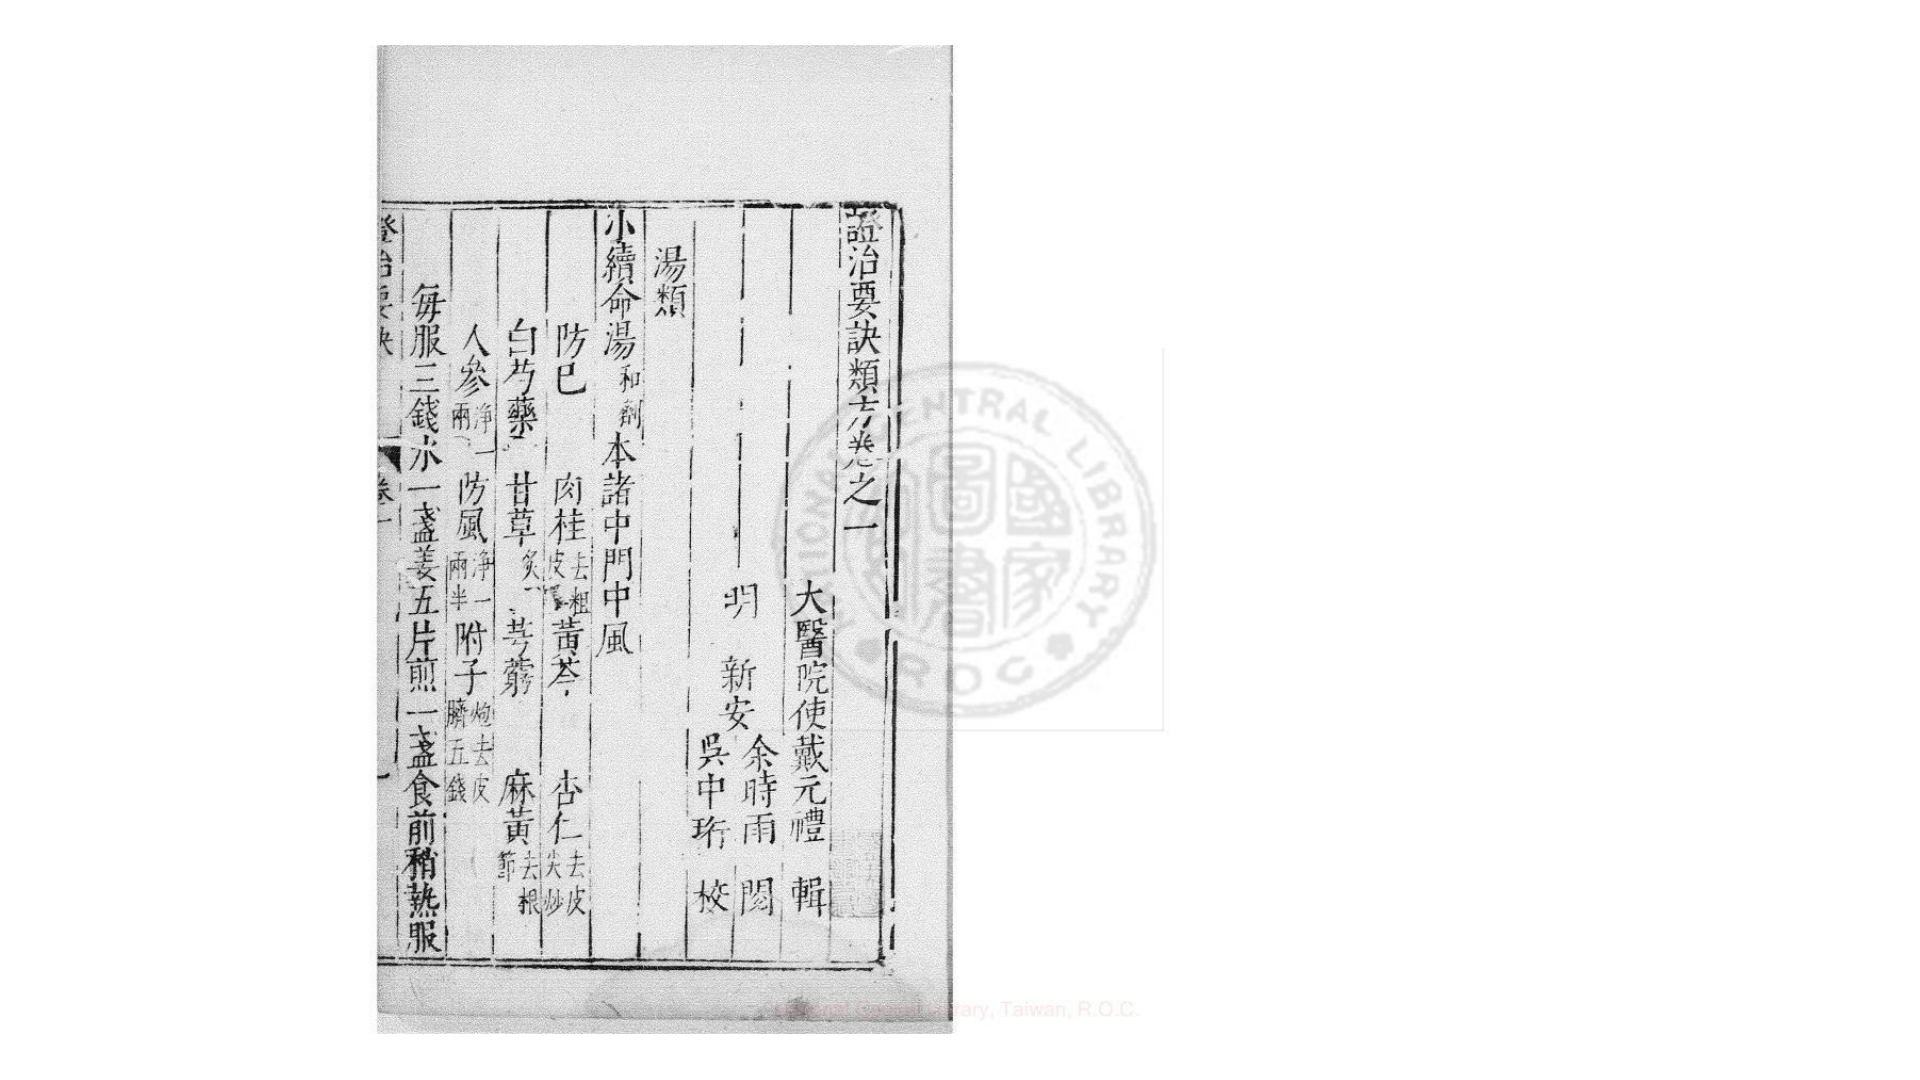 證治要訣類方卷之一
大醫院使戴元禮 輯
明 新安 余時雨 閱
吳中珩 校
湯類
小續命湯 和劑 本諸中門中風
防已 肉桂 去粗皮 黃芩 杏仁 去皮尖炒
白芍藥 甘草 炙 芎藭 麻黃 去根節
人參 淨一兩 防風 淨一兩半 附子 炮去皮臍五錢
每服三錢水一盞姜五片煎一盞食前稍熱服
證治要訣 卷一
NATIONAL CENTRAL LIBRARY R.O.C
國家圖書
National Central Library, Taiwan, R.O.C.